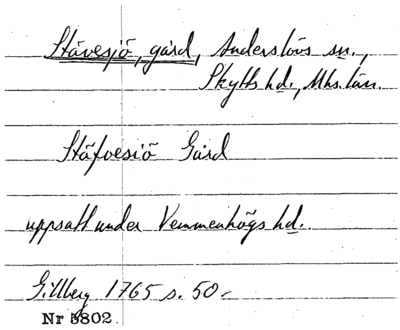 Stävesjö, gård, Anderslövs sn.,
Skytts hd., Mhs. län.
Stäfvesiö Gård
uppsatt under Vemmenhögs hd.
Gillberg 1765 s. 50.
Nr 5802.